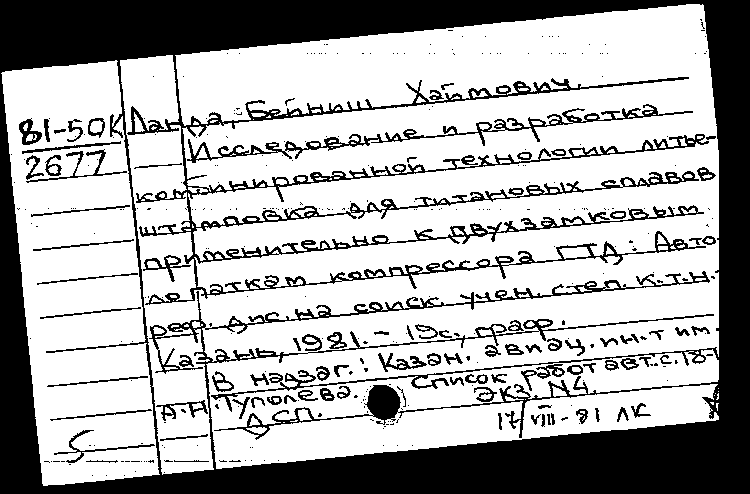 81-50К
2677
Ланда, Бейниш Хаймович.
Исследование и разработка
комбинированной технологии литье-
штамповка для титановых сплавов
применительно к двухзамковым
лопаткам компрессора ГТД: Авто-
реф. дис. на соиск. учен. степ. к.т.н.
Казань, 1981. - 19с., граф.
В надзаг.: Казан. авиац. ин-т им.
А.Н. Туполева. Список работ авт. с. 18-1
ДСП. Экз. №4.
17/VIII-81 ЛК
5